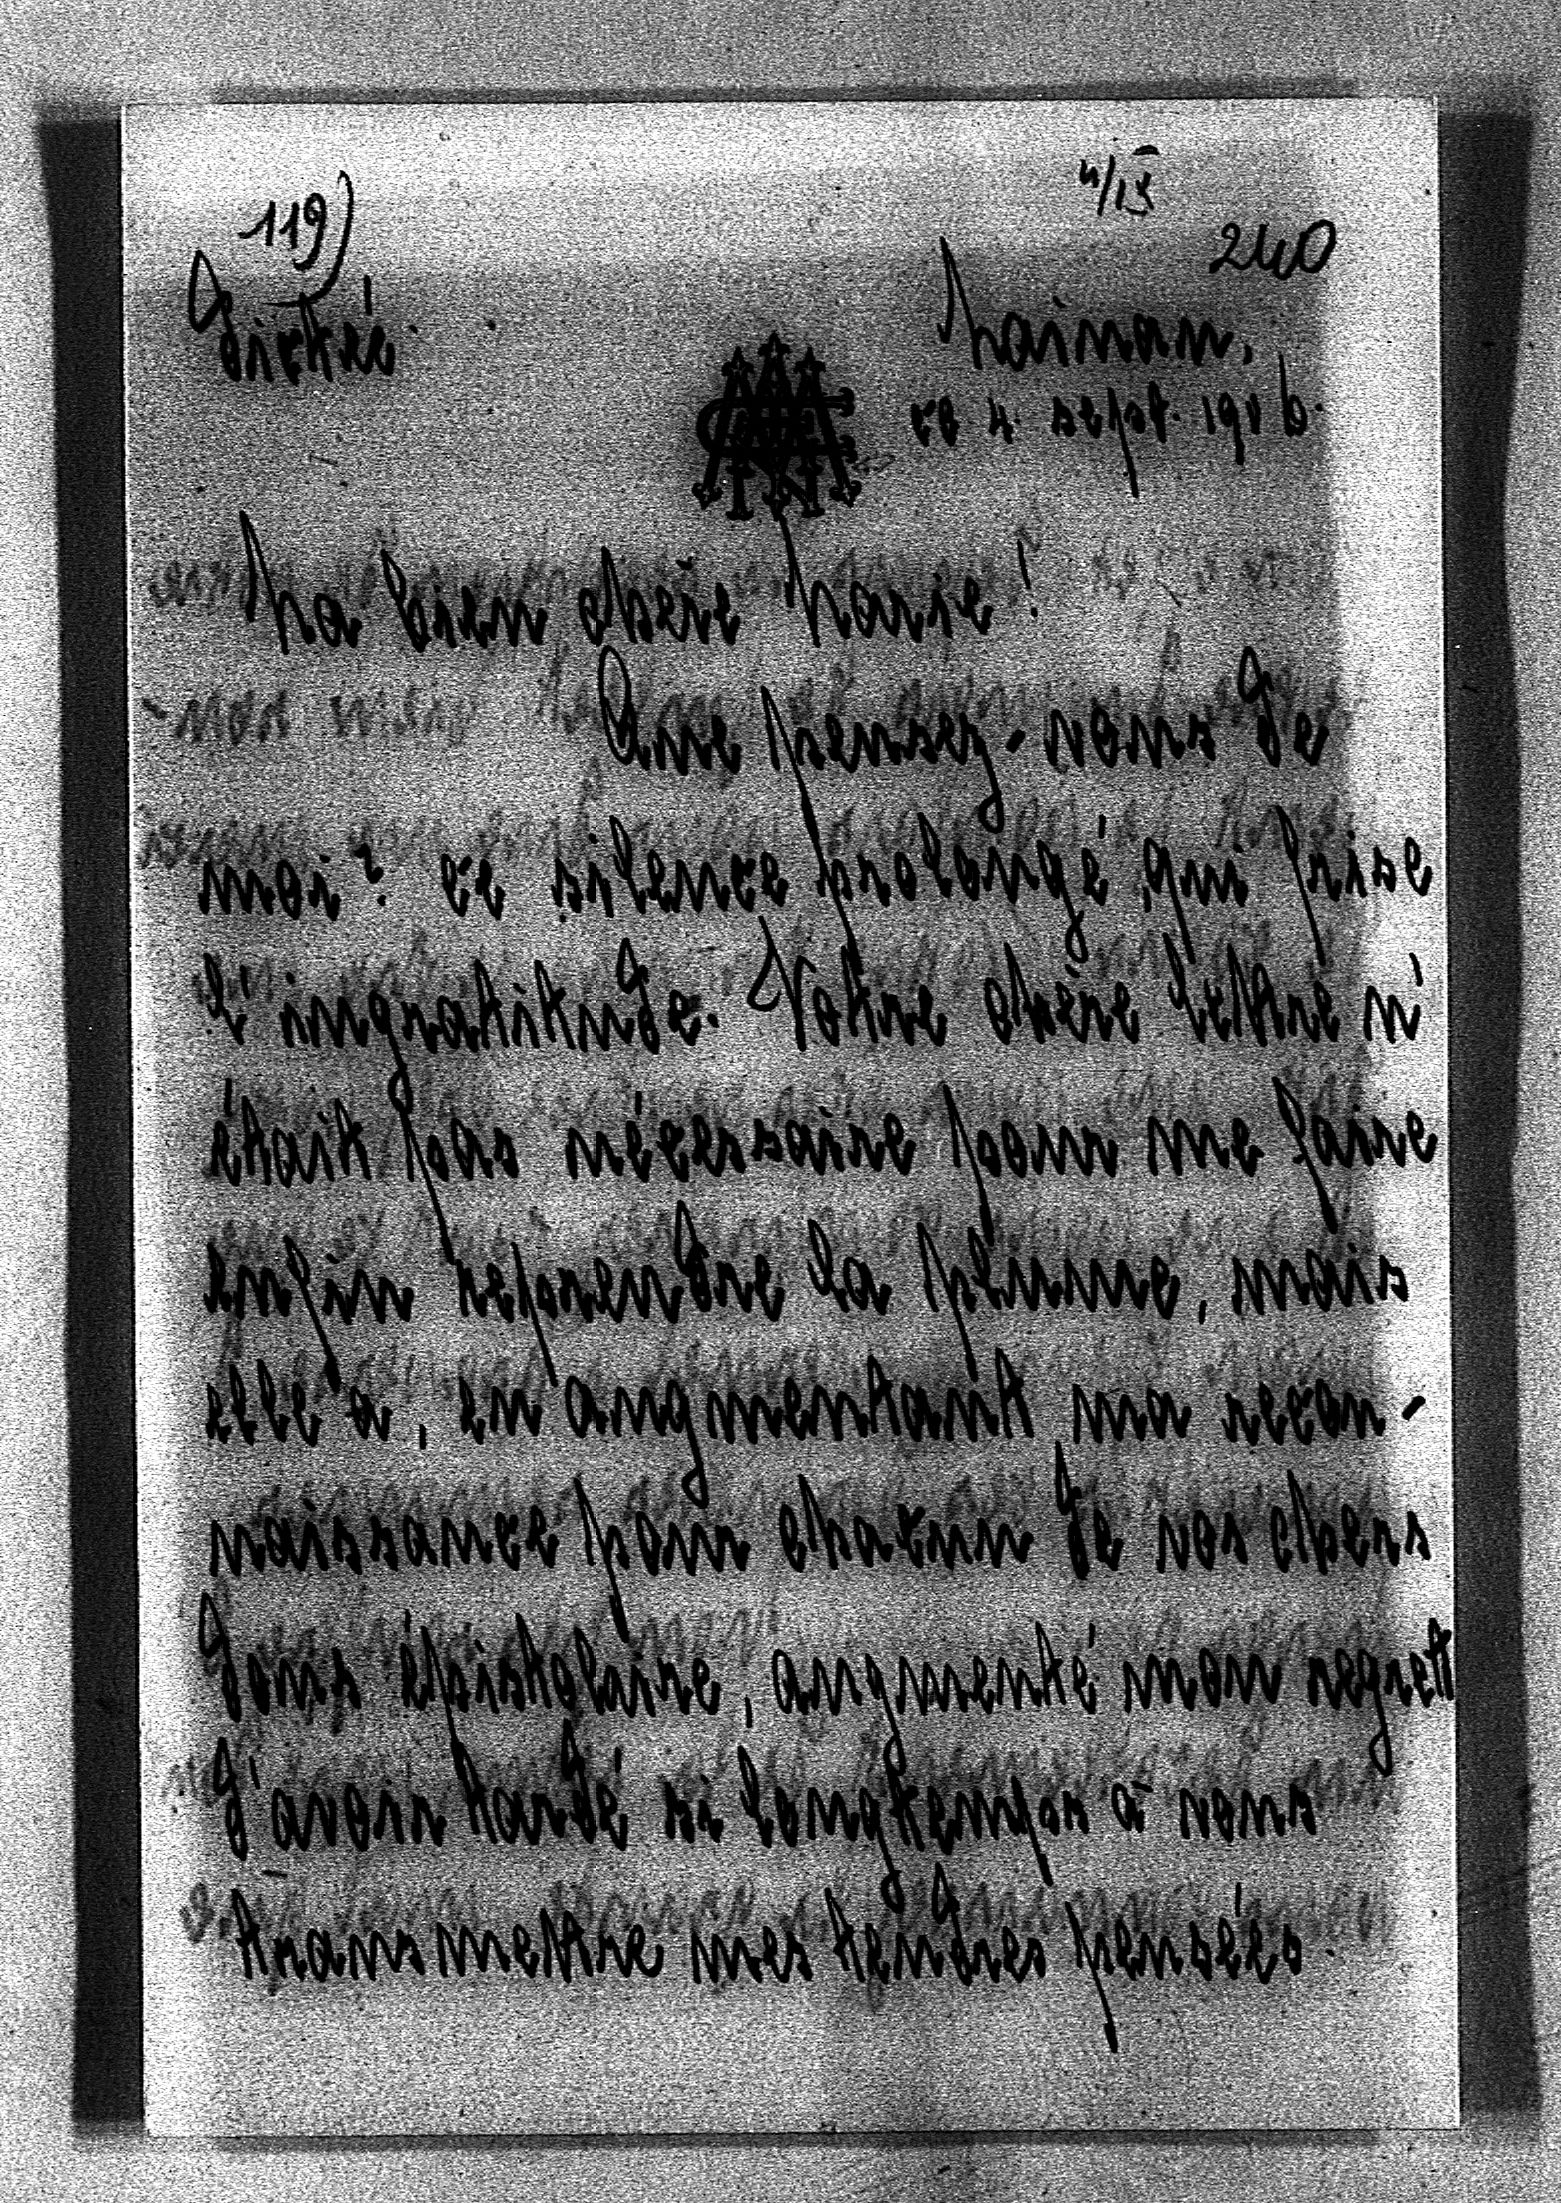 119)
4/IX
240
Dictée.
Mainau,
ce 4. sept. 1916.
Ma bien chère Marie!
Que pensez-vous de
moi? ce silence prolongé, qui frise
l'ingratitude. Votre chère lettre n'
était pas nécessaire pour me faire
enfin reprendre la plume, mais
elle a, en augmentant ma recon-
naissance pour chacun de vos chers
dons épistolaire, augmenté mon regrett
d'avoir tardé si longtemps à vous
transmettre mes tendres pensées.